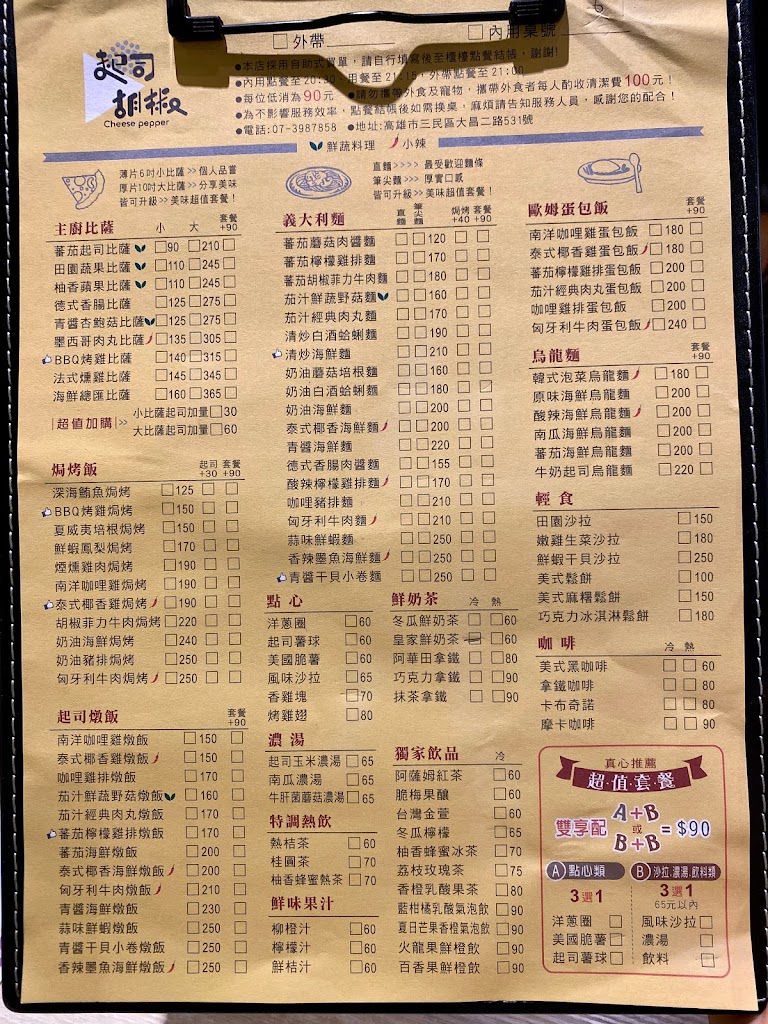 □外帶 □內用桌號 6
起司胡椒
Cheese pepper
●本店採用自助式買單，請自行填寫後至櫃檯點餐結帳，謝謝!
●內用點餐至20:30，用餐至21:15，外帶點餐至21:00
●每位低消為90元 ●請勿攜帶外食及寵物，攜帶外食者每人酌收清潔費100元！
●為不影響服務效率，點餐結帳後如需換桌，麻煩請告知服務人員，感謝您的配合！
●電話:07-3987858 ●地址:高雄市三民區大昌二路531號
鮮蔬料理 小辣
薄片6吋小比薩>>個人品嘗
厚片10吋大比薩>>分享美味
皆可升級>>美味超值套餐！
直麵>>>> 最受歡迎麵條
筆尖麵>>> 厚實口感
皆可升級>>美味超值套餐！
主廚比薩 小 大 套餐+90
蕃茄起司比薩 □90 □210 □
田園蔬果比薩 □110 □245 □
柚香蘋果比薩 □110 □245 □
德式香腸比薩 □125 □275 □
青醬杏鮑菇比薩 □125 □275 □
墨西哥肉丸比薩 □135 □305 □
BBQ烤雞比薩 □140 □315 □
法式燻雞比薩 □145 □345 □
海鮮總匯比薩 □160 □365 □
|超值加購|>> 小比薩起司加量□30
大比薩起司加量□60
焗烤飯 起司+30 套餐+90
深海鮪魚焗烤 □125 □ □
BBQ烤雞焗烤 □150 □ □
夏威夷培根焗烤 □150 □ □
鮮蝦鳳梨焗烤 □170 □ □
煙燻雞肉焗烤 □190 □ □
南洋咖哩雞焗烤 □190 □ □
泰式椰香雞焗烤 □190 □ □
胡椒菲力牛肉焗烤 □220 □ □
奶油海鮮焗烤 □240 □ □
奶油豬排焗烤 □250 □ □
匈牙利牛肉焗烤 □250 □ □
起司燉飯 套餐+90
南洋咖哩雞燉飯 □150 □
泰式椰香雞燉飯 □150 □
咖哩雞排燉飯 □170 □
茄汁鮮蔬野菇燉飯 □160 □
茄汁經典肉丸燉飯 □170 □
蕃茄檸檬雞排燉飯 □170 □
蕃茄海鮮燉飯 □200 □
泰式椰香海鮮燉飯 □200 □
匈牙利牛肉燉飯 □210 □
青醬海鮮燉飯 □230 □
蒜味鮮蝦燉飯 □250 □
青醬干貝小卷燉飯 □250 □
香辣墨魚海鮮燉飯 □250 □
義大利麵 直麵 筆尖麵 焗烤+40 套餐+90
蕃茄蘑菇肉醬麵 □□120 □ □
蕃茄檸檬雞排麵 □□170 □ □
蕃茄胡椒菲力牛肉麵 □□180 □ □
茄汁鮮蔬野菇麵 □□160 □ □
茄汁經典肉丸麵 □□170 □ □
清炒白酒蛤蜊麵 □□190 □ □
清炒海鮮麵 □□210 □ □
奶油蘑菇培根麵 □□160 □ □
奶油白酒蛤蜊麵 □□180 □ □
奶油海鮮麵 □□200 □ □
泰式椰香海鮮麵 □□200 □ □
青醬海鮮麵 □□220 □ □
德式香腸肉醬麵 □□155 □ □
酸辣檸檬雞排麵 □□170 □ □
咖哩豬排麵 □□210 □ □
匈牙利牛肉麵 □□210 □ □
蒜味鮮蝦麵 □□250 □ □
香辣墨魚海鮮麵 □□250 □ □
青醬干貝小卷麵 □□250 □ □
點心
洋蔥圈 □60
起司薯球 □60
美國脆薯 □60
風味沙拉 □65
香雞塊 □70
烤雞翅 □80
濃湯
起司玉米濃湯 □65
南瓜濃湯 □65
牛肝菌蘑菇濃湯 □65
特調熱飲
熱桔茶 □60
桂圓茶 □70
柚香蜂蜜熱茶 □70
鮮味果汁
柳橙汁 □60
檸檬汁 □60
鮮桔汁 □60
鮮奶茶 冷 熱
冬瓜鮮奶茶 □ □60
皇家鮮奶茶 □ □60
阿華田拿鐵 □ □80
巧克力拿鐵 □ □90
抹茶拿鐵 □ □90
獨家飲品 冷
阿薩姆紅茶 □60
脆梅果釀 □60
台灣金萱 □60
冬瓜檸檬 □65
柚香蜂蜜冰茶 □70
荔枝玫瑰茶 □75
香橙乳酸果茶 □80
藍柑橘乳酸氣泡飲 □90
夏日芒果香橙氣泡飲 □90
火龍果鮮橙飲 □90
百香果鮮橙飲 □90
歐姆蛋包飯 套餐+90
南洋咖哩雞蛋包飯 □180 □
泰式椰香雞蛋包飯 □180 □
蕃茄檸檬雞排蛋包飯 □200 □
茄汁經典肉丸蛋包飯 □200 □
咖哩雞排蛋包飯 □200 □
匈牙利牛肉蛋包飯 □240 □
烏龍麵 套餐+90
韓式泡菜烏龍麵 □180 □
原味海鮮烏龍麵 □200 □
酸辣海鮮烏龍麵 □200 □
南瓜海鮮烏龍麵 □200 □
蕃茄海鮮烏龍麵 □200 □
牛奶起司烏龍麵 □220 □
輕食
田園沙拉 □150
嫩雞生菜沙拉 □180
鮮蝦干貝沙拉 □250
美式鬆餅 □100
美式麻糬鬆餅 □150
巧克力冰淇淋鬆餅 □180
咖啡 冷 熱
美式黑咖啡 □ □ 60
拿鐵咖啡 □ □ 80
卡布奇諾 □ □ 80
摩卡咖啡 □ □ 90
真心推薦
超·值·套·餐
雙享配 A+B 或 B+B =$90
A 點心類
3選1
洋蔥圈 □
美國脆薯 □
起司薯球 □
B 沙拉.濃湯.飲料類
3選1
65元以內
風味沙拉 □
濃湯 □
飲料 □